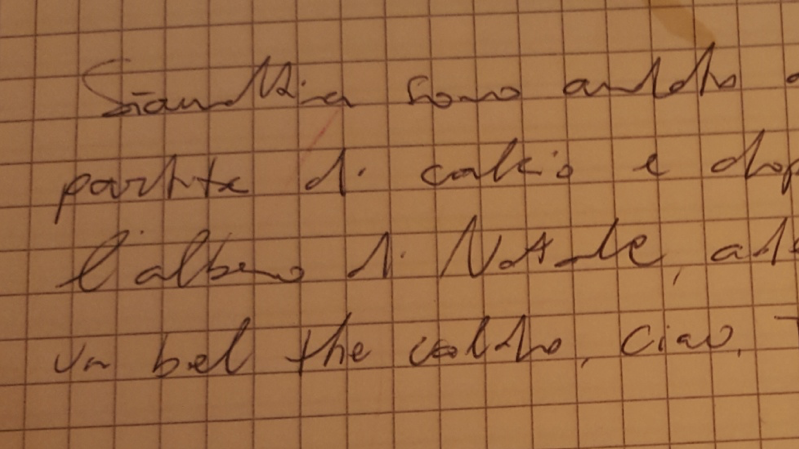 Stamattina sono andato a
partite di calcio e dop
l'albero di Natale, ad
un bel the caldo, ciao,